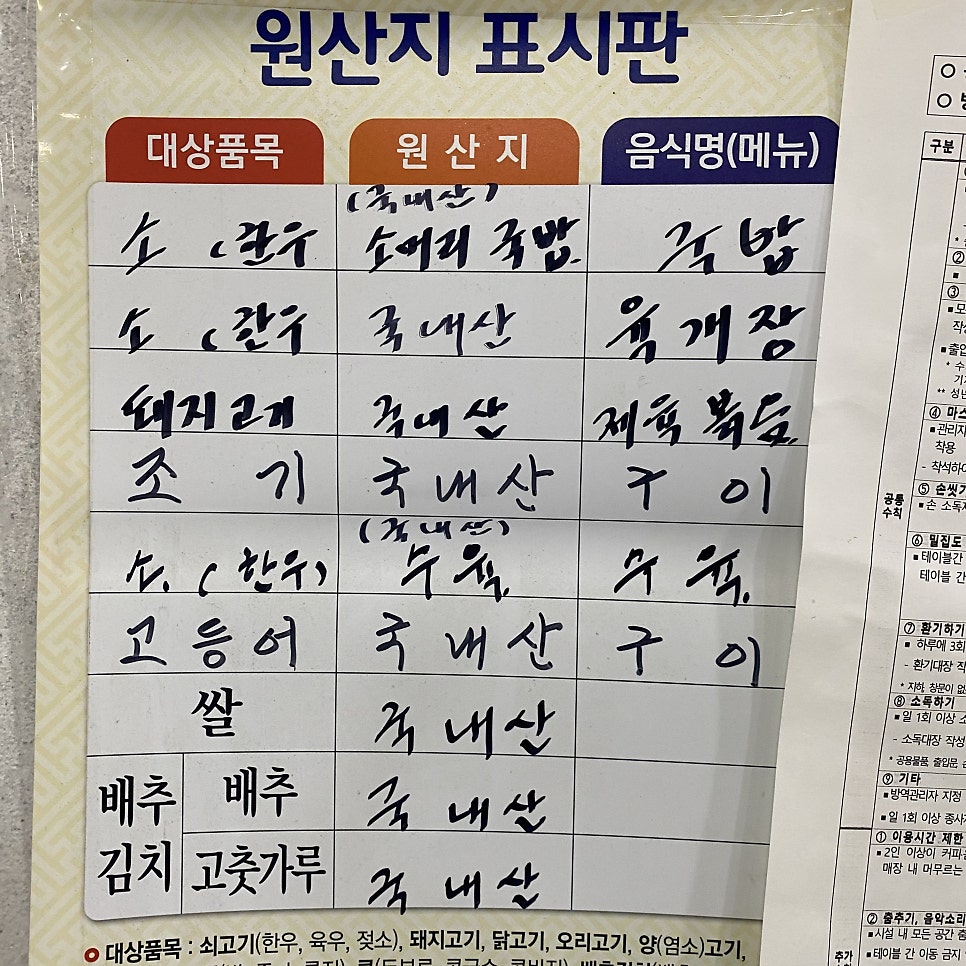 원산지 표시판
대상품목 원산지 음식명(메뉴)
(국내산)
소 (한우 소머리 국밥. 국밥
소 (한우 국내산 육개장
돼지고기 국내산 제육볶음.
조기 국내산 구이
(국내산)
소. (한우) 수육. 수육.
고등어 국내산 구이
쌀 국내산
배추 배추 국내산
김치 고춧가루 국내산
대상품목 : 쇠고기(한우, 육우, 젖소), 돼지고기, 닭고기, 오리고기, 양(염소)고기,
구분
②
③
■출입
④ 마스
■관리자
착용
- 착석하여
공통
수칙
⑤ 손씻기
■손 소독제
⑥ 밀집도
■테이블간
테이블 간
⑦ 환기하기
■ 하루에 3회
- 환기대장 작
* 지하, 창문이 없
⑧ 소독하기
■일 1회 이상 소
- 소독대장 작성
* 공용물품, 출입문, 손
⑨ 기타
■방역관리자 지정
■일 1회 이상 종사자
① 이용시간 제한
■2인 이상이 커피
매장 내 머무르는
② 춤추기, 음악소리
■시설 내 모든 공간 춤
추가
■테이블 간 이동 금지